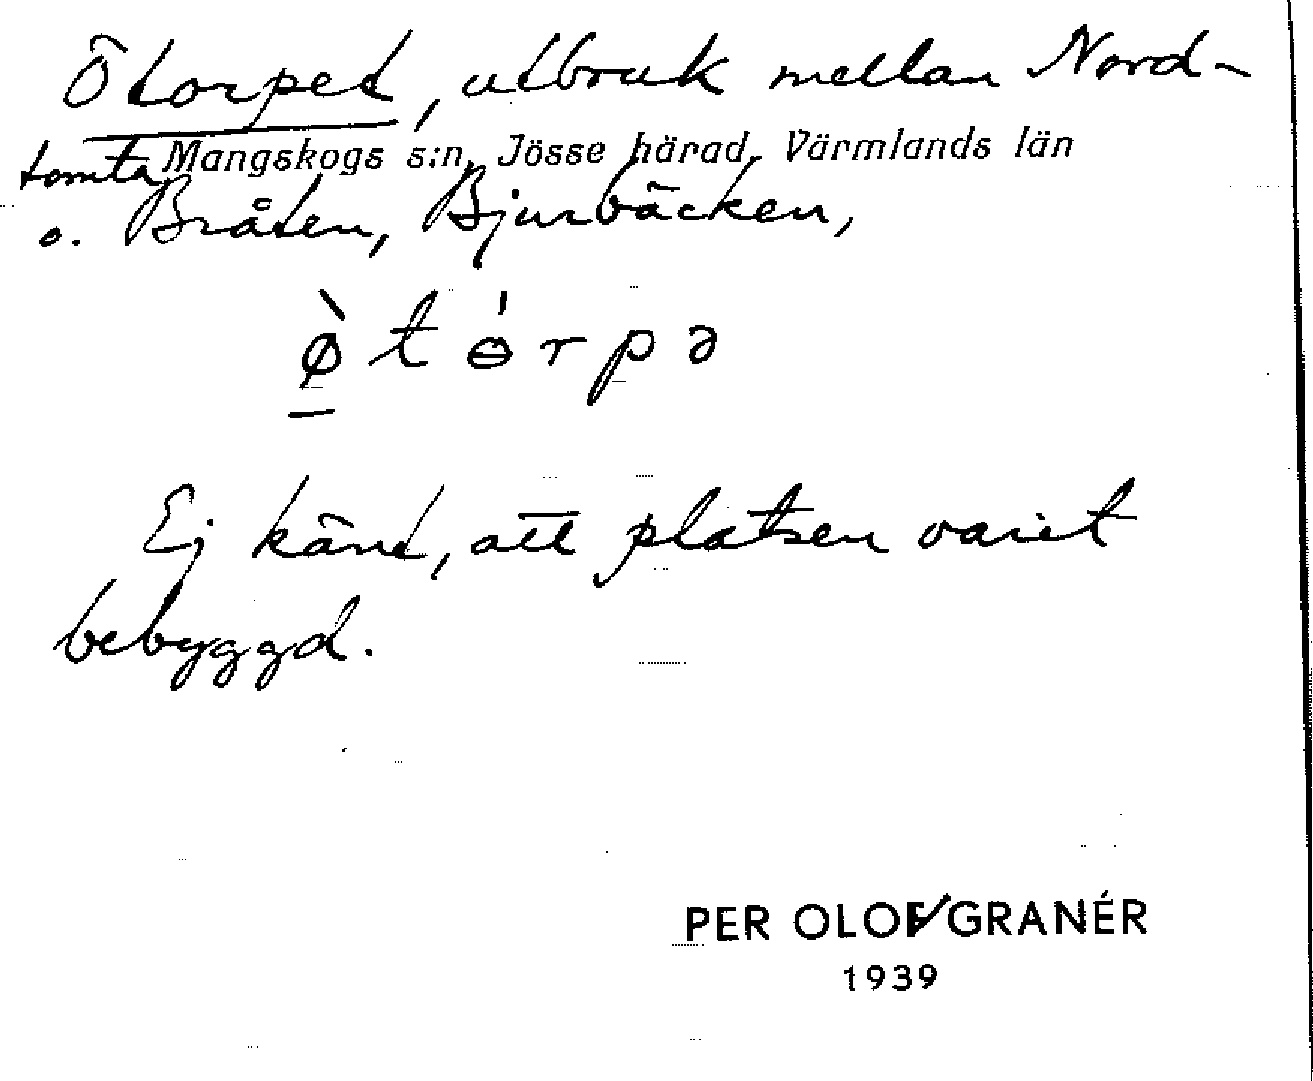 Ötorpet, utbruk mellan Nord-
Mangskogs s:n, Jösse härad, Värmlands län
tomta
o. Bråten, Bjurbäcken,
ø̀ t ɵ́ r p ə
Ej känt, att platsen varit
bebyggd.
PER OLOF GRANÉR
1939